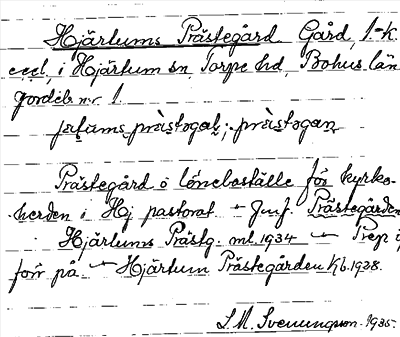 Hjärtums Prästegård Gård, 1-k.
eccl, i Hjärtum sn, Torpe hd, Bohus län
Jordeb. nr 1.
Prästegård o löneboställe för kyrko-
herden i Hj pastorat – Jmf. Prästegården
Hjärtums Prästg. ml. 1934 – Prep i
för på – Hjärtum Prästegården Kb. 1928.
S. M. Svenungson. 1935.